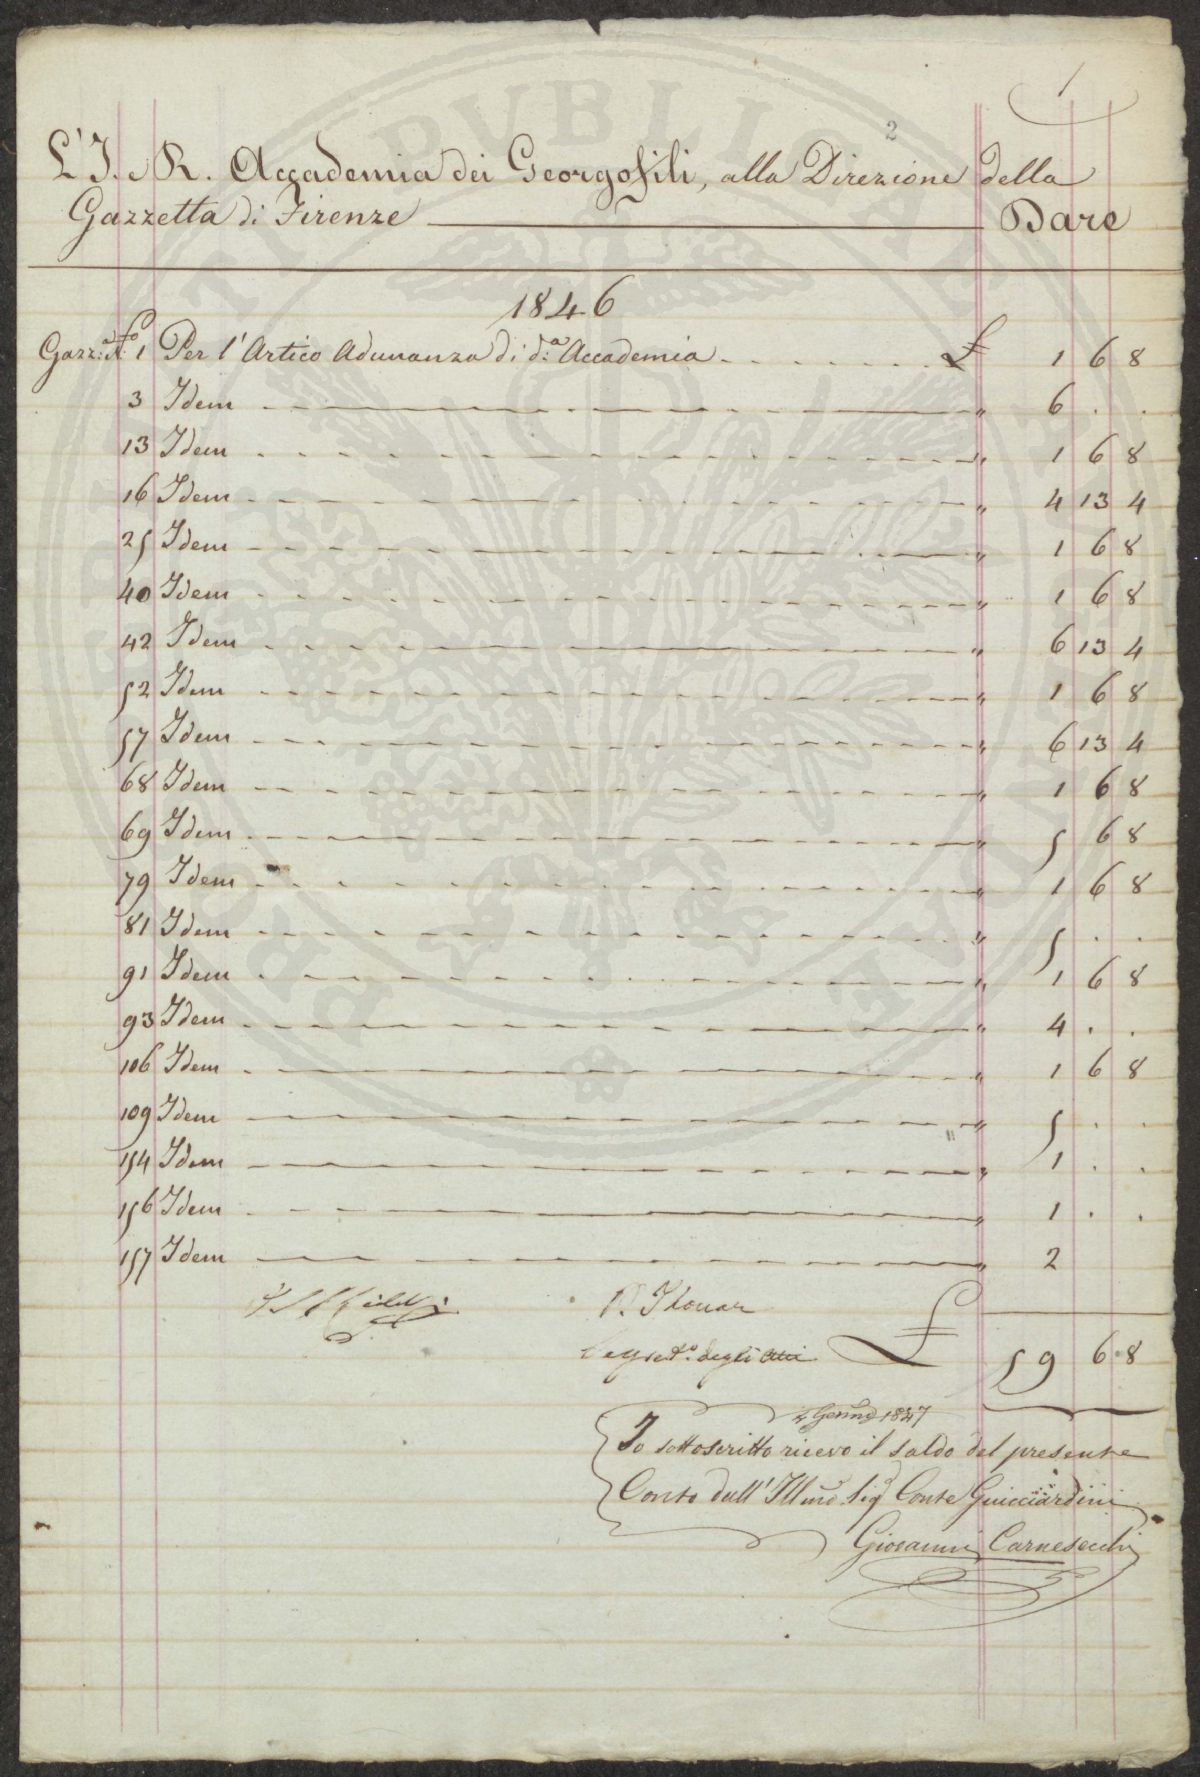 1
2
L'I. R. Accademia dei Georgofili, alla Direzione della
Gazzetta di Firenze Dare
1846
Gazz:a No: 1 Per l'Artico Adunanza di d:a Accademia £ 1 6 8
3 Idem " 6 . .
13 Idem " 1 6 8
16 Idem " 4 13 4
25 Idem " 1 6 8
40 Idem " 1 6 8
42 Idem " 6 13 4
52 Idem " 1 6 8
57 Idem " 6 13 4
68 Idem " 1 6 8
69 Idem " 5 6 8
79 Idem " 1 6 8
81 Idem " 5 . .
91 Idem " 1 6 8
93 Idem " 4 . .
106 Idem " 1 6 8
109 Idem " 5 . .
154 Idem " 1 . .
156 Idem " 1 . .
157 Idem " 2
P. Thouar
Segret.o degli Atti £ 59 6 8
4 Genn.o 1847
Io sottoscritto ricevo il saldo del presente
Conto dall'Illmo Sig Conte Guicciardini
Giovanni Carnesecchi